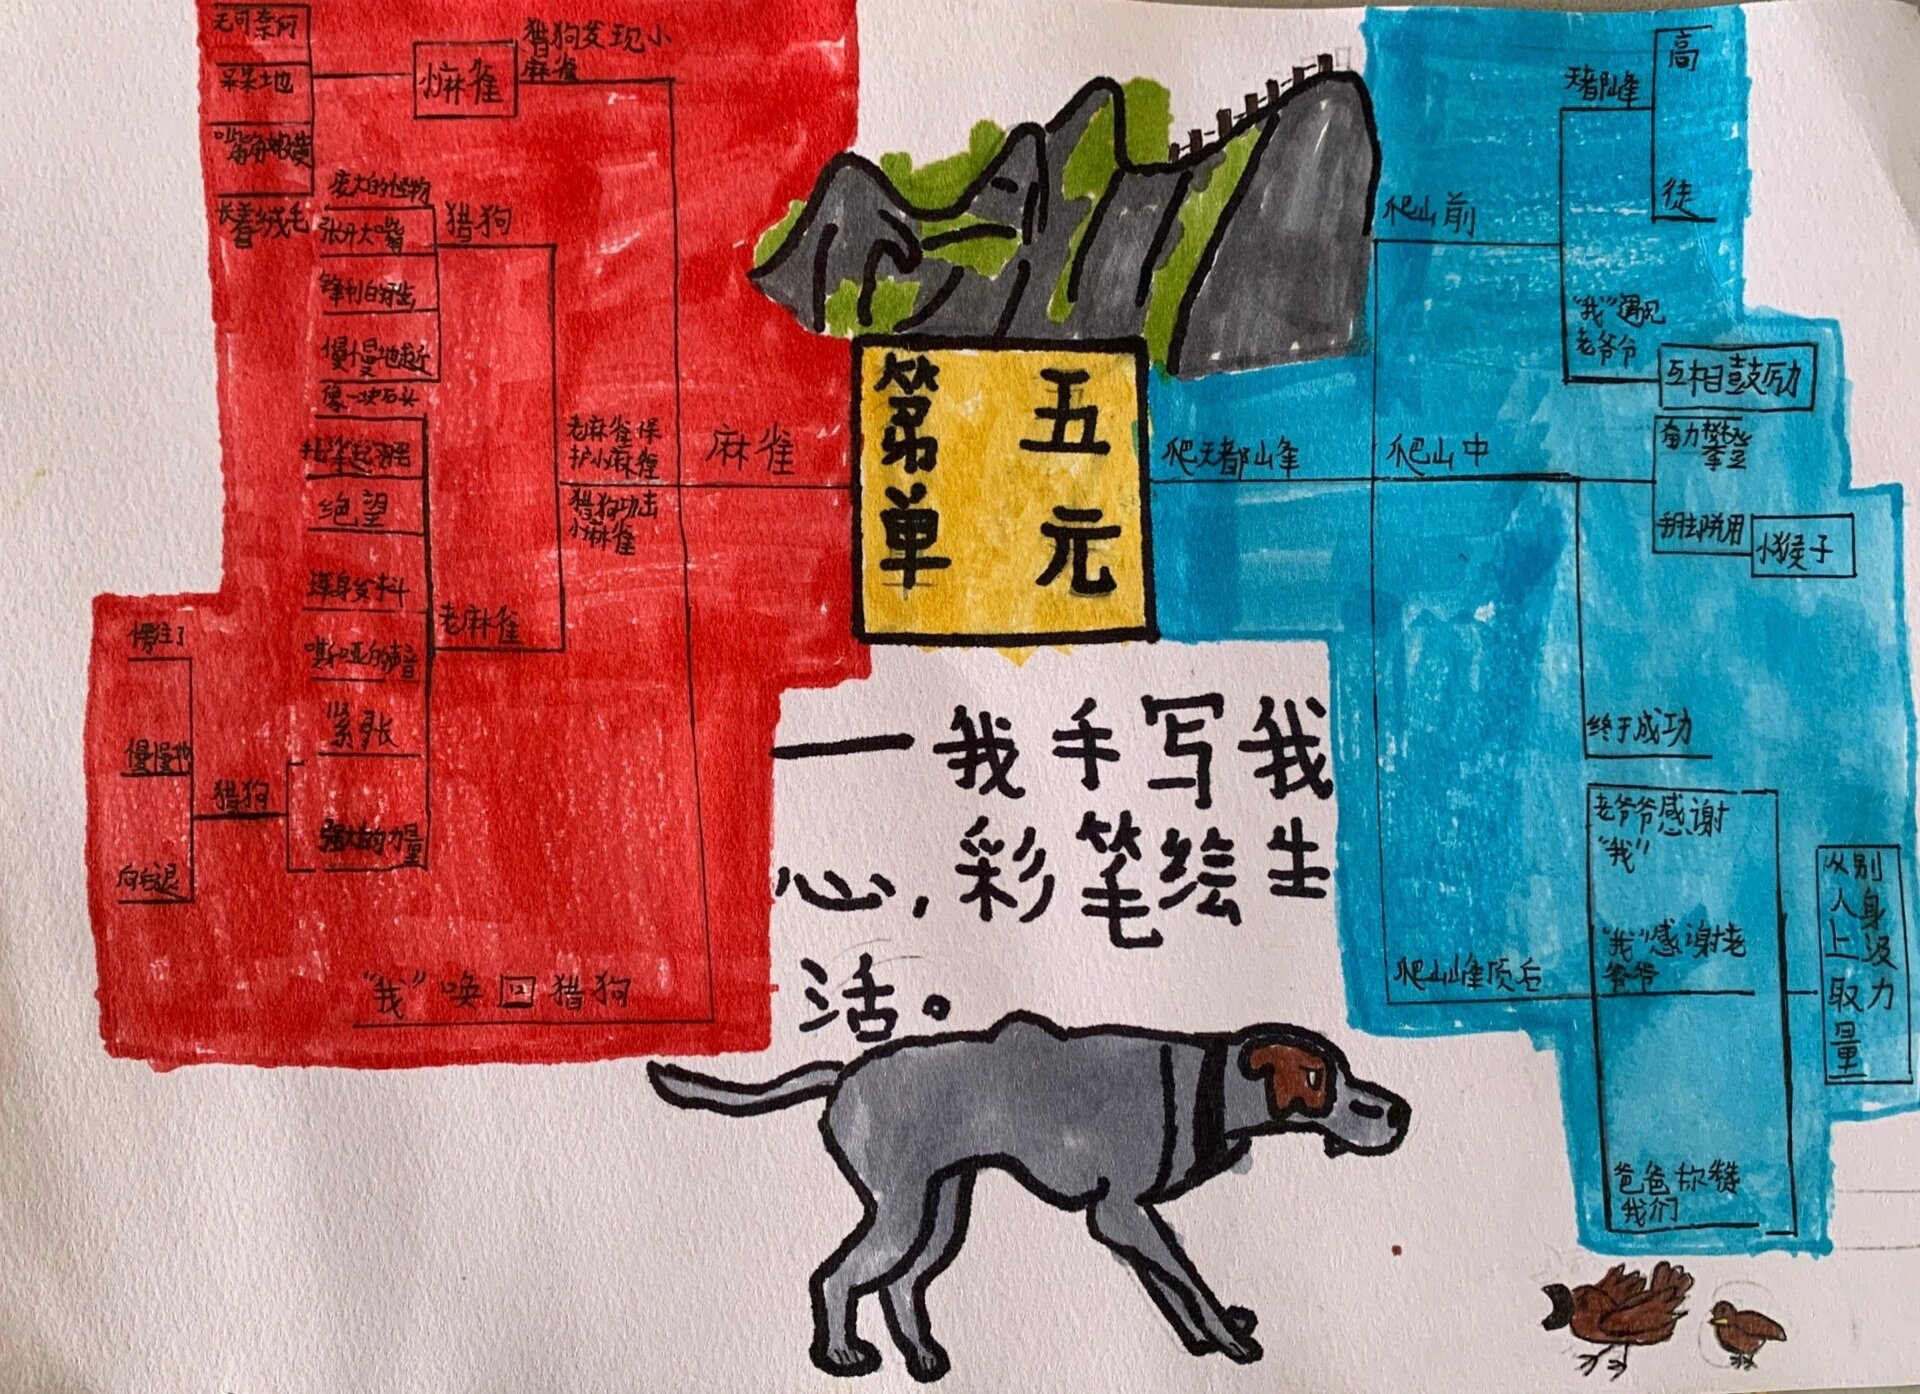 无可奈何
呆呆地
嘴角嫩黄
长着绒毛
小麻雀
猎狗发现小
麻雀
庞大的怪物
张开大嘴
锋利的牙齿
慢慢地走近
猎狗
像一块石头
绝望
浑身发抖
嘶哑的声音
紧张
强大的力量
老麻雀
老麻雀保
护小麻雀
猎狗攻击
小麻雀
麻雀
愣住了
慢慢地
向后退
猎狗
"我"唤回猎狗
第五
单元
一我手写我
心,彩笔绘生
活。
爬天都峰
爬山前
天都峰
高
徒
"我"遇见
老爷爷
互相鼓励
爬山中
奋力攀登
手脚并用
小猴子
终于成功
爬山峰顶后
老爷爷感谢
"我"
"我"感谢老
爷爷
爸爸称赞
我们
从别
人身
上汲
取力
量